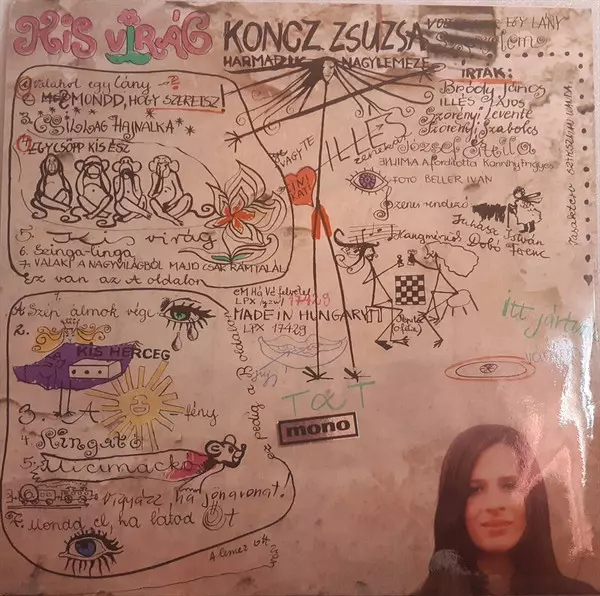 Kis virág
KONCZ ZSUZSA
HARMADIK NAGYLEMEZE
EGY LÁNY
1 Valahol egy lány
2 MONDD, HOGY SZERETSZ!
3. CSILLAG HAJNALKA
4 EGY CSÖPP KIS ÉSZ
5. Kis virág
6. Szinga-linga
7. VALAKI A NAGYVILÁGBÓL MAJD CSAK RÁMTALÁL
Ez van az A oldalon
ÍRTÁK:
Bródy János
ILLÉS LAJOS
Szörényi Levente
Szörényi Szabolcs
József Attila
FOTO BELLER IVÁN
Zenei rendező
Juhász István
Hangmérnök Dobó Ferenc
VAGY TE
ILLÉS
zenekar
1. Szép álmok vége
2.
KIS HERCEG
3. A fény
4. Ringató
5. Micimackó
Vigyázz, ha jön a vonat!
7. Mondd el, ha látod Őt
A lemez
ez pedig a B oldalon
LPX 17429
MADE IN HUNGARY
LPX 17429
T & T
mono
itt jártam